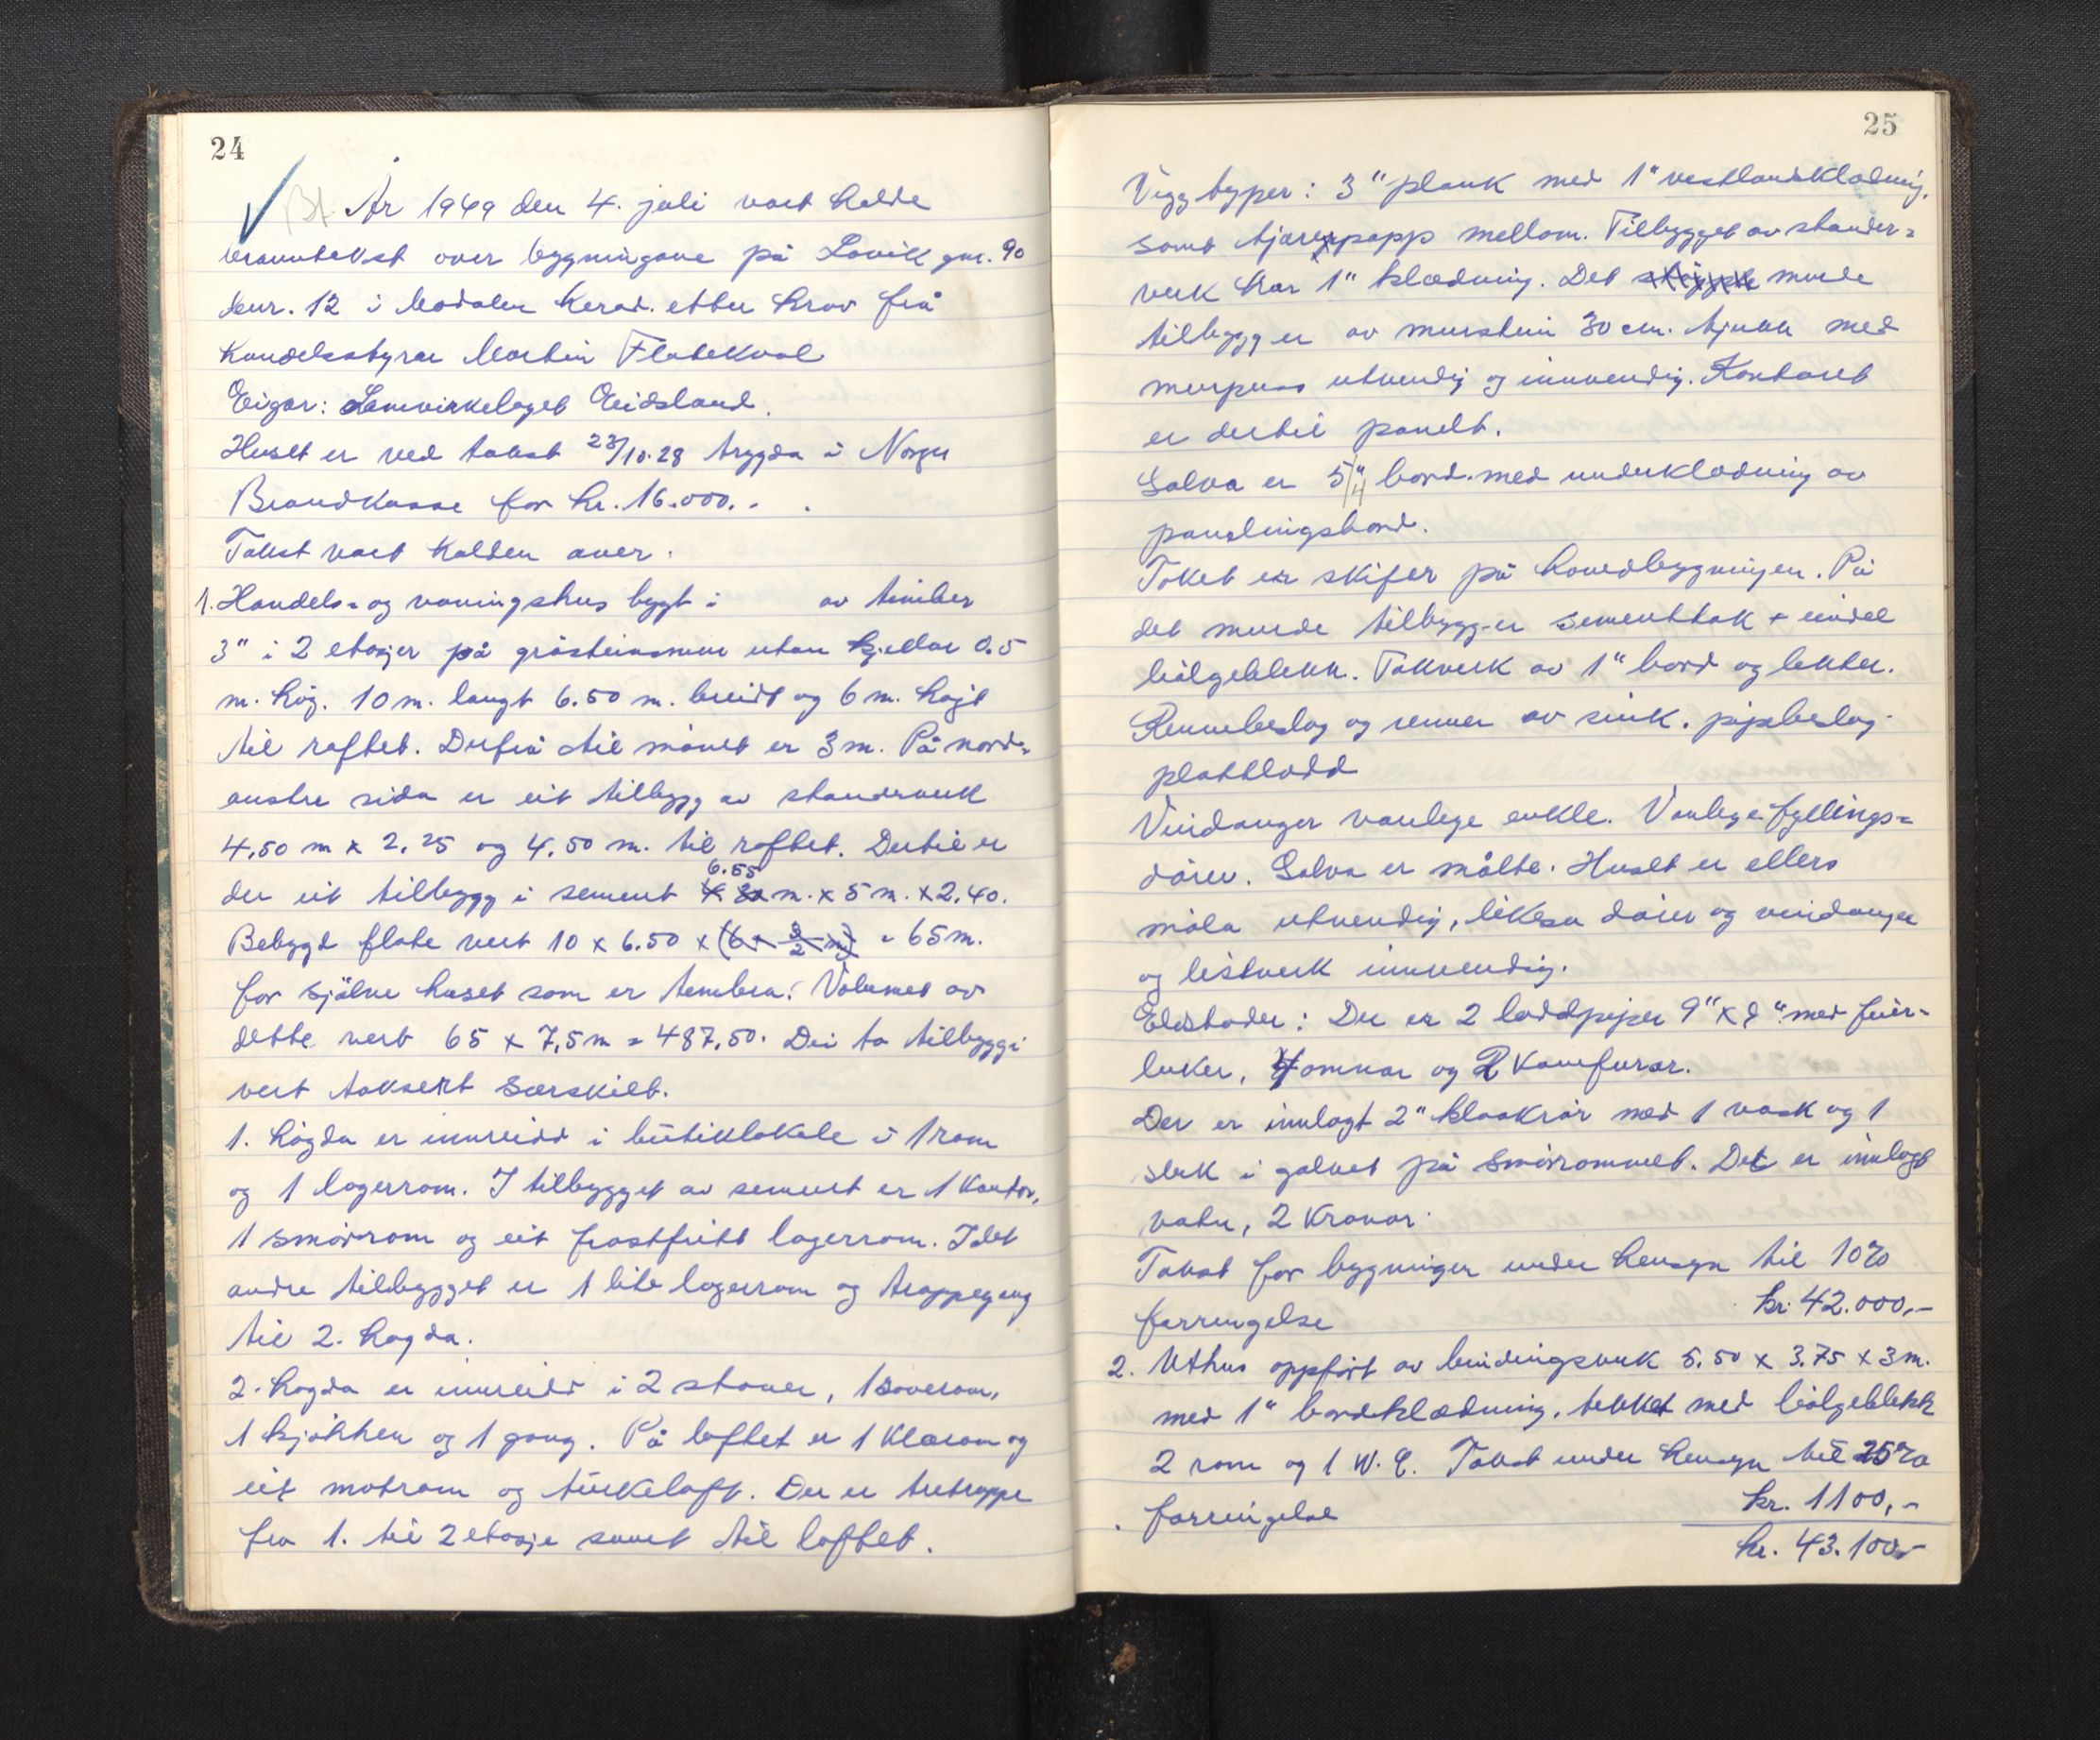 24
År 1949 den 4. juli vart halde
branntakst over bygningane på Lavik gnr. 90
bnr. 12 i Modalen herad. etter krav frå
handelsstyrar Martin Flatekval
Eigar: Samvirkelaget Eidsland.
Huset er ved takst 23/10.28 trygda i Norges
Brandkasse for kr. 16.000.-
Takst vart halden over:
1. Handels- og vaningshus bygt i av timber
3" i 2 etasjer på gråsteinsmur utan kjellar 0.5
m. høg. 10 m. langt 6.50 m. breidt og 6 m. høgt
til raftet. Derfrå til mønet er 3 m. På nord-
austre sida er eit tilbygg av standerverk
4,50 m x 2,25 og 4,50 m. til raftet. Dertil er
6.55
der eit tilbygg i sement m. x 5 m. x 2,40.
Bebygd flate vert 10 x 6.50 x (6 + 3/2 m) = 65 m.
for sjølve huset som er tembra. Volumet av
dette vert 65 x 7,5 m = 487,50. Dei to tilbyggi
vert taksert særskilt.
1. høgda er innreidd i butiklokale i 1 rom
og 1 lagerrom. I tilbygget av sement er 1 kontor,
1 smørrom og eit frostfritt lagerrom. I det
andre tilbygget er 1 lite lagerrom og trappegang
til 2. høgda.
2. høgda er innreidd i 2 stover, 1 soverom,
1 kjøkken og 1 gang. På loftet er 1 klærom og
eit matrom og tørkeloft. Der er tretrappe
fra 1. til 2 etasje samt til loftet.
25
Veggtyper: 3" plank med 1" vestlandsklædnig.
samt tjærepapp mellom. Tilbygget av stander-
verk har 1" klædning. Det murde
tilbygg er av murstein 30 cm. tjukk med
murpuss utvendig og innvendig. Kontoret
er dertil panelt.
Golva er 5/4" bord. med underklædning av
panelingsbord.
Taket er skifer på hovedbygningen. På
det murde tilbygg er sementtak + eindel
bølgeblekk. Takverk av 1" bord og lekter.
Rennebeslag og renner av sink. pipbeslag
plattlodd
Vindauger vanlege enkle. Vanlege fyllings-
dører. Golva er målte. Huset er ellers
måla utvendig, likesa dører og vindauger
og listverk innvendig.
Eldstader: Der er 2 loddpiper 9" x 9" med feier-
luker, 4 omnar og 2 komfurar.
Der er innlagt 2" kloakrør med 1 vask og 1
sluk i golvet på smørrommet. Det er innlagt
vatn, 2 kranar.
Takst for bygningen under hensyn til 10%
forringelse kr. 42.000,-
2. Uthus oppført av bindingsverk 5.50 x 3.75 x 3 m.
med 1" bordklædning. tekket med bølgeblekk
2 rom og 1 W.C. Takst under hensyn til 25%
forringelse kr. 1100,-
kr. 43.100,-